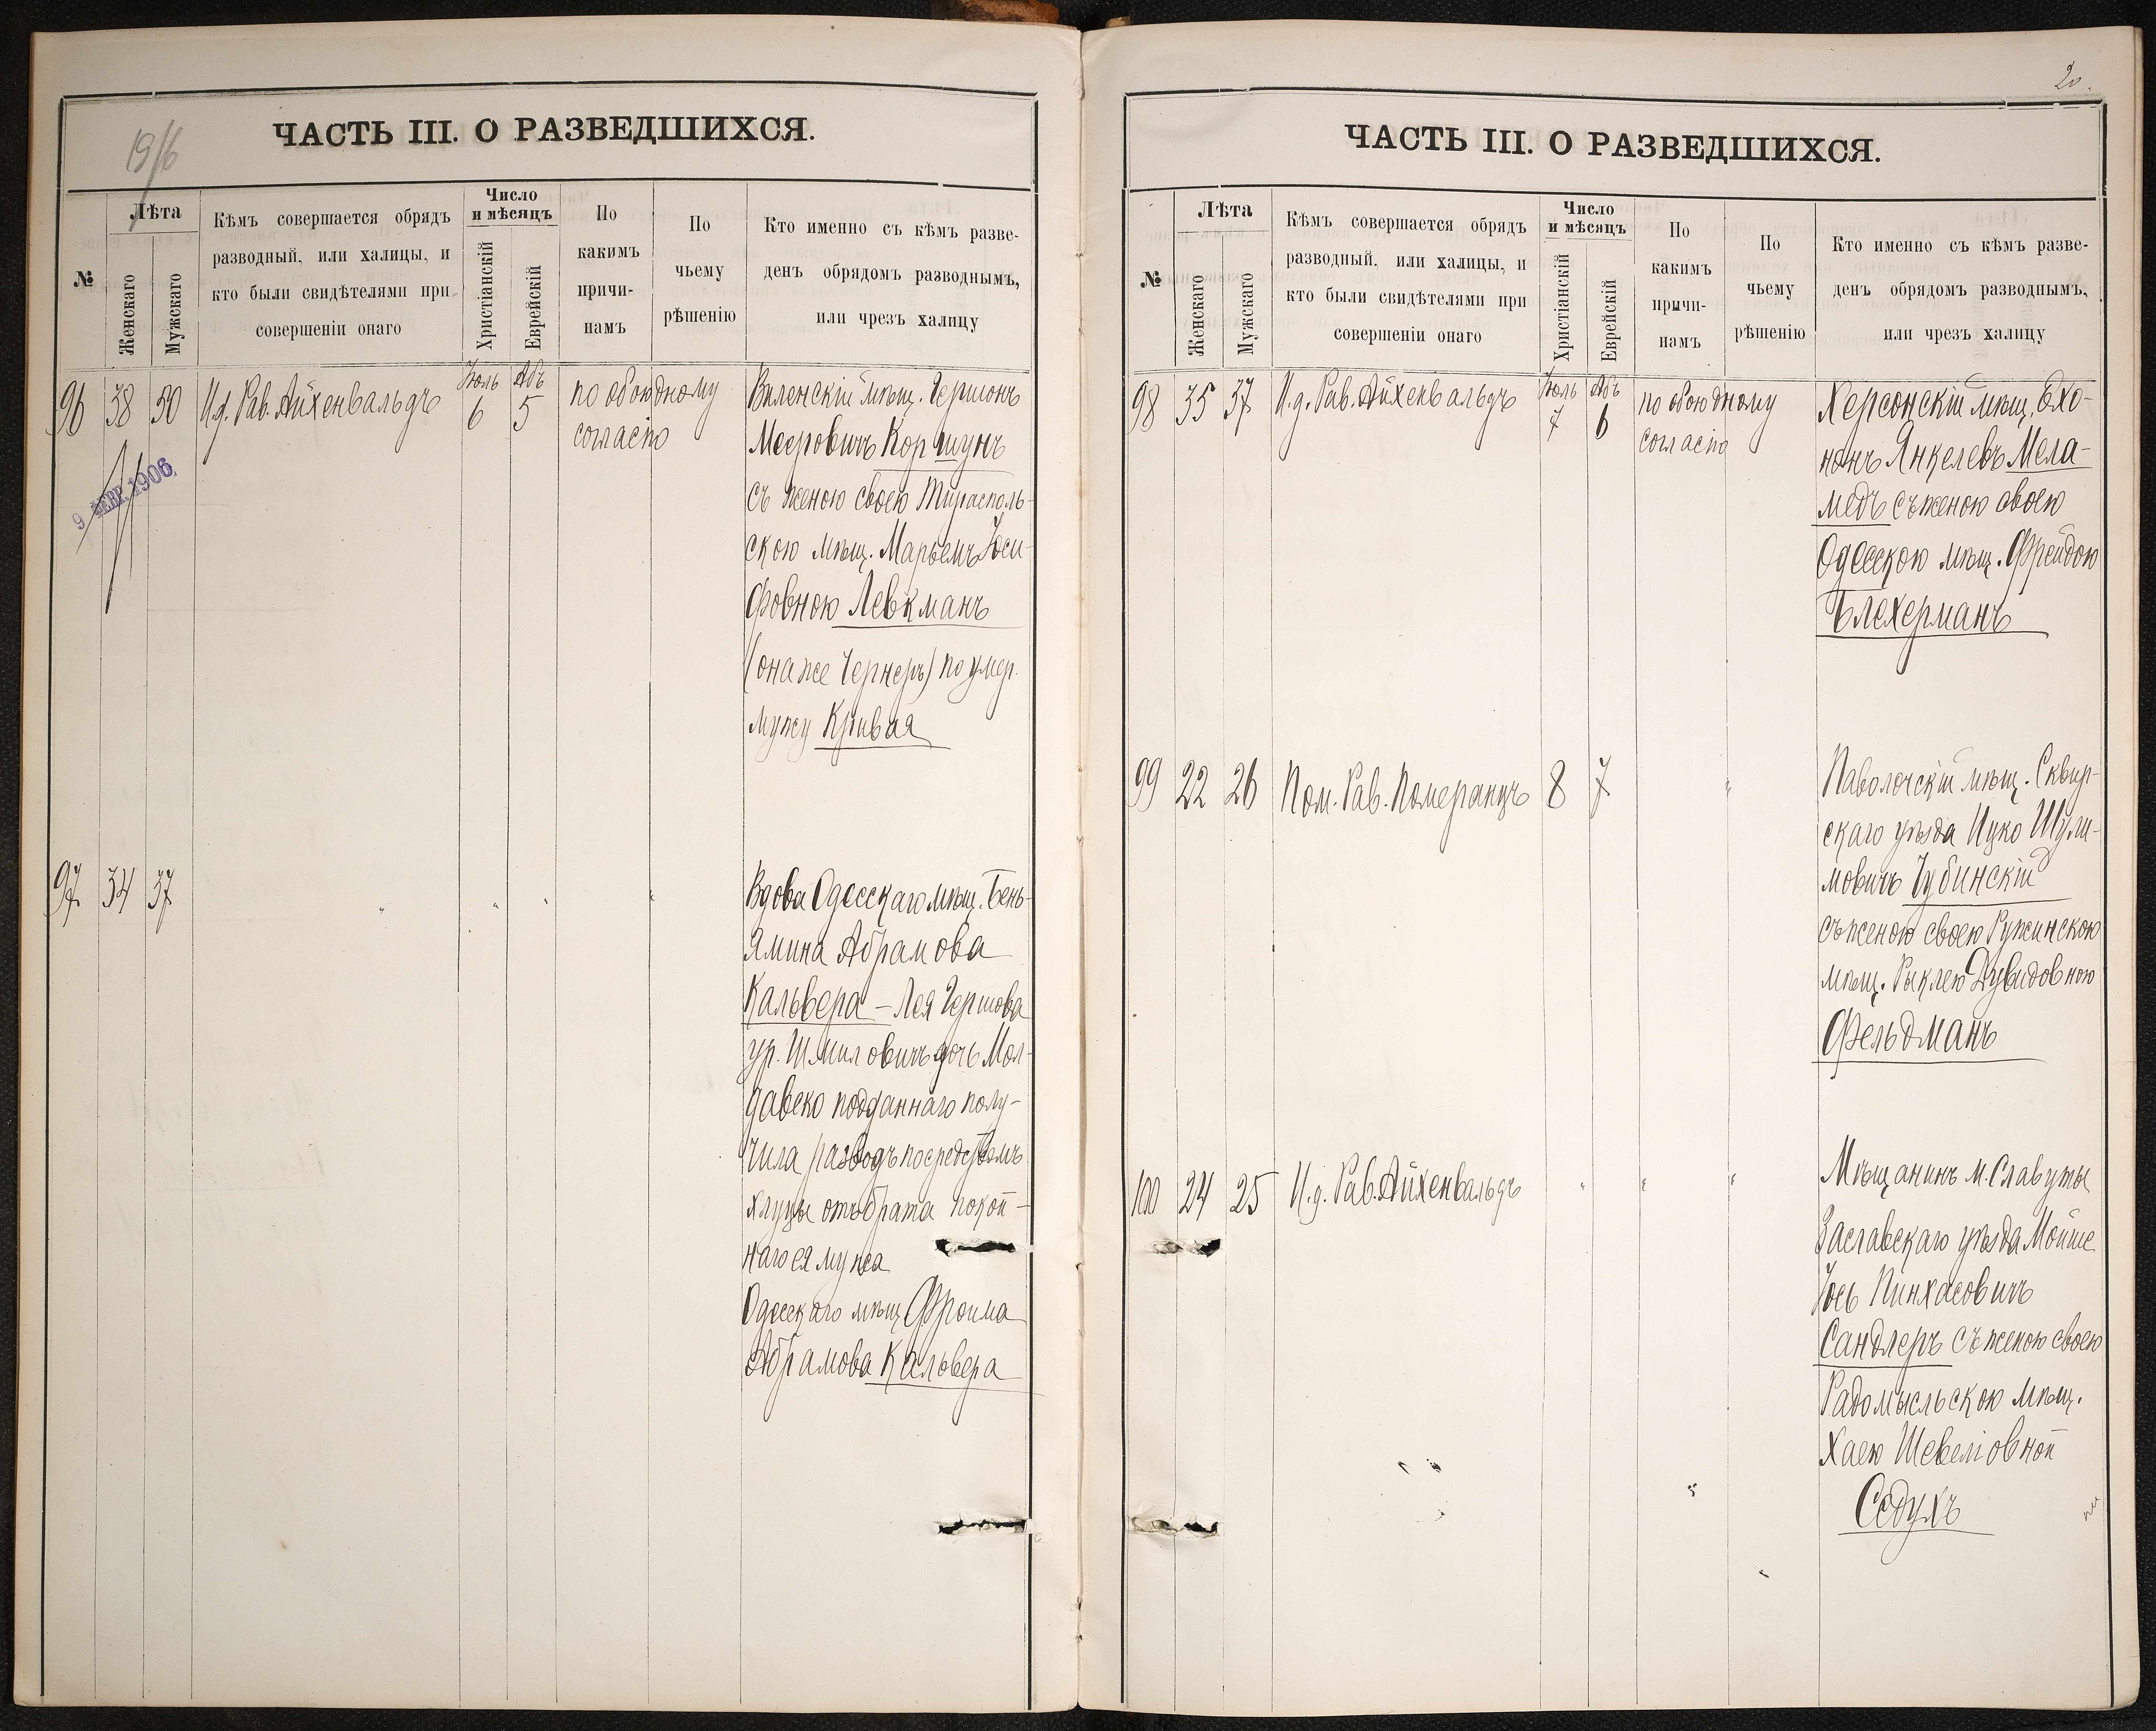 ЧАСТЬ III. О РАЗВЕДШИХСЯ.
№
Лѣта
Женскаго
Мужскаго
Кѣмъ совершается обрядъ
разводный, или халицы, и
кто были свидѣтелями при
совершеніи онаго
Число
и мѣсяцъ
Христіанскій
Еврейскій
По
какимъ
причи-
намъ
По
чьему
рѣшенію
Кто именно съ кѣмъ разве-
денъ обрядомъ разводнымъ,
или чрезъ халицу
96 38 50 И.д. Рав. Айхенвальдъ
Іюль 6
Абъ 5
по обоюдному
согласію
Виленскій мѣщ. Гершонъ
Мееровичъ Коршунъ
съ женою своею Тирасполь-
скою мѣщ. Марьемъ Іоси-
фовною Левкманъ
(она же Чернеръ) по умер.
мужу Кривая
9 ФЕВР. 1906
97 34 37 " " " "
Вдова Одесскаго мѣщ. Бень-
ямина Абрамова
Кальвера – Лея Гершова
ур. Шмиловичъ дочь Мол-
давско подданнаго полу-
чила разводъ посредствомъ
хлуцы отъ брата покой-
наго ея мужа
Одесскаго мѣщ. Фроима
Абрамова Кальвера
20.
ЧАСТЬ III. О РАЗВЕДШИХСЯ.
№
Лѣта
Женскаго
Мужскаго
Кѣмъ совершается обрядъ
разводный, или халицы, и
кто были свидѣтелями при
совершеніи онаго
Число
и мѣсяцъ
Христіанскій
Еврейскій
По
какимъ
причи-
намъ
По
чьему
рѣшенію
Кто именно съ кѣмъ разве-
денъ обрядомъ разводнымъ,
или чрезъ халицу
98 35 37 И.д. Рав. Айхенвальдъ
Іюль 7
Абъ 6
по обоюдному
согласію
Херсонскій мѣщ. Ехо-
нонъ Янкелевъ Мела-
медъ съ женою своею
Одесскою мѣщ. Фрейдою
Блехерманъ
99 22 26 Пом. Рав. Померанцъ 8 7 "
Паволочскій мѣщ. Сквир-
скаго уѣзда Ицко Шули-
мовичъ Чубинскій
съ женою своею Ружинскою
мѣщ. Рыклею Дувидовною
Фельдманъ
100 24 25 И.д. Рав. Айхенвальдъ " " "
Мѣщанинъ м. Славуты
Заславскаго уѣзда Мойше
Іось Пинхасовичъ
Сандлеръ съ женою своею
Радомысльскою мѣщ.
Хаею Шевеліовной
Седухъ